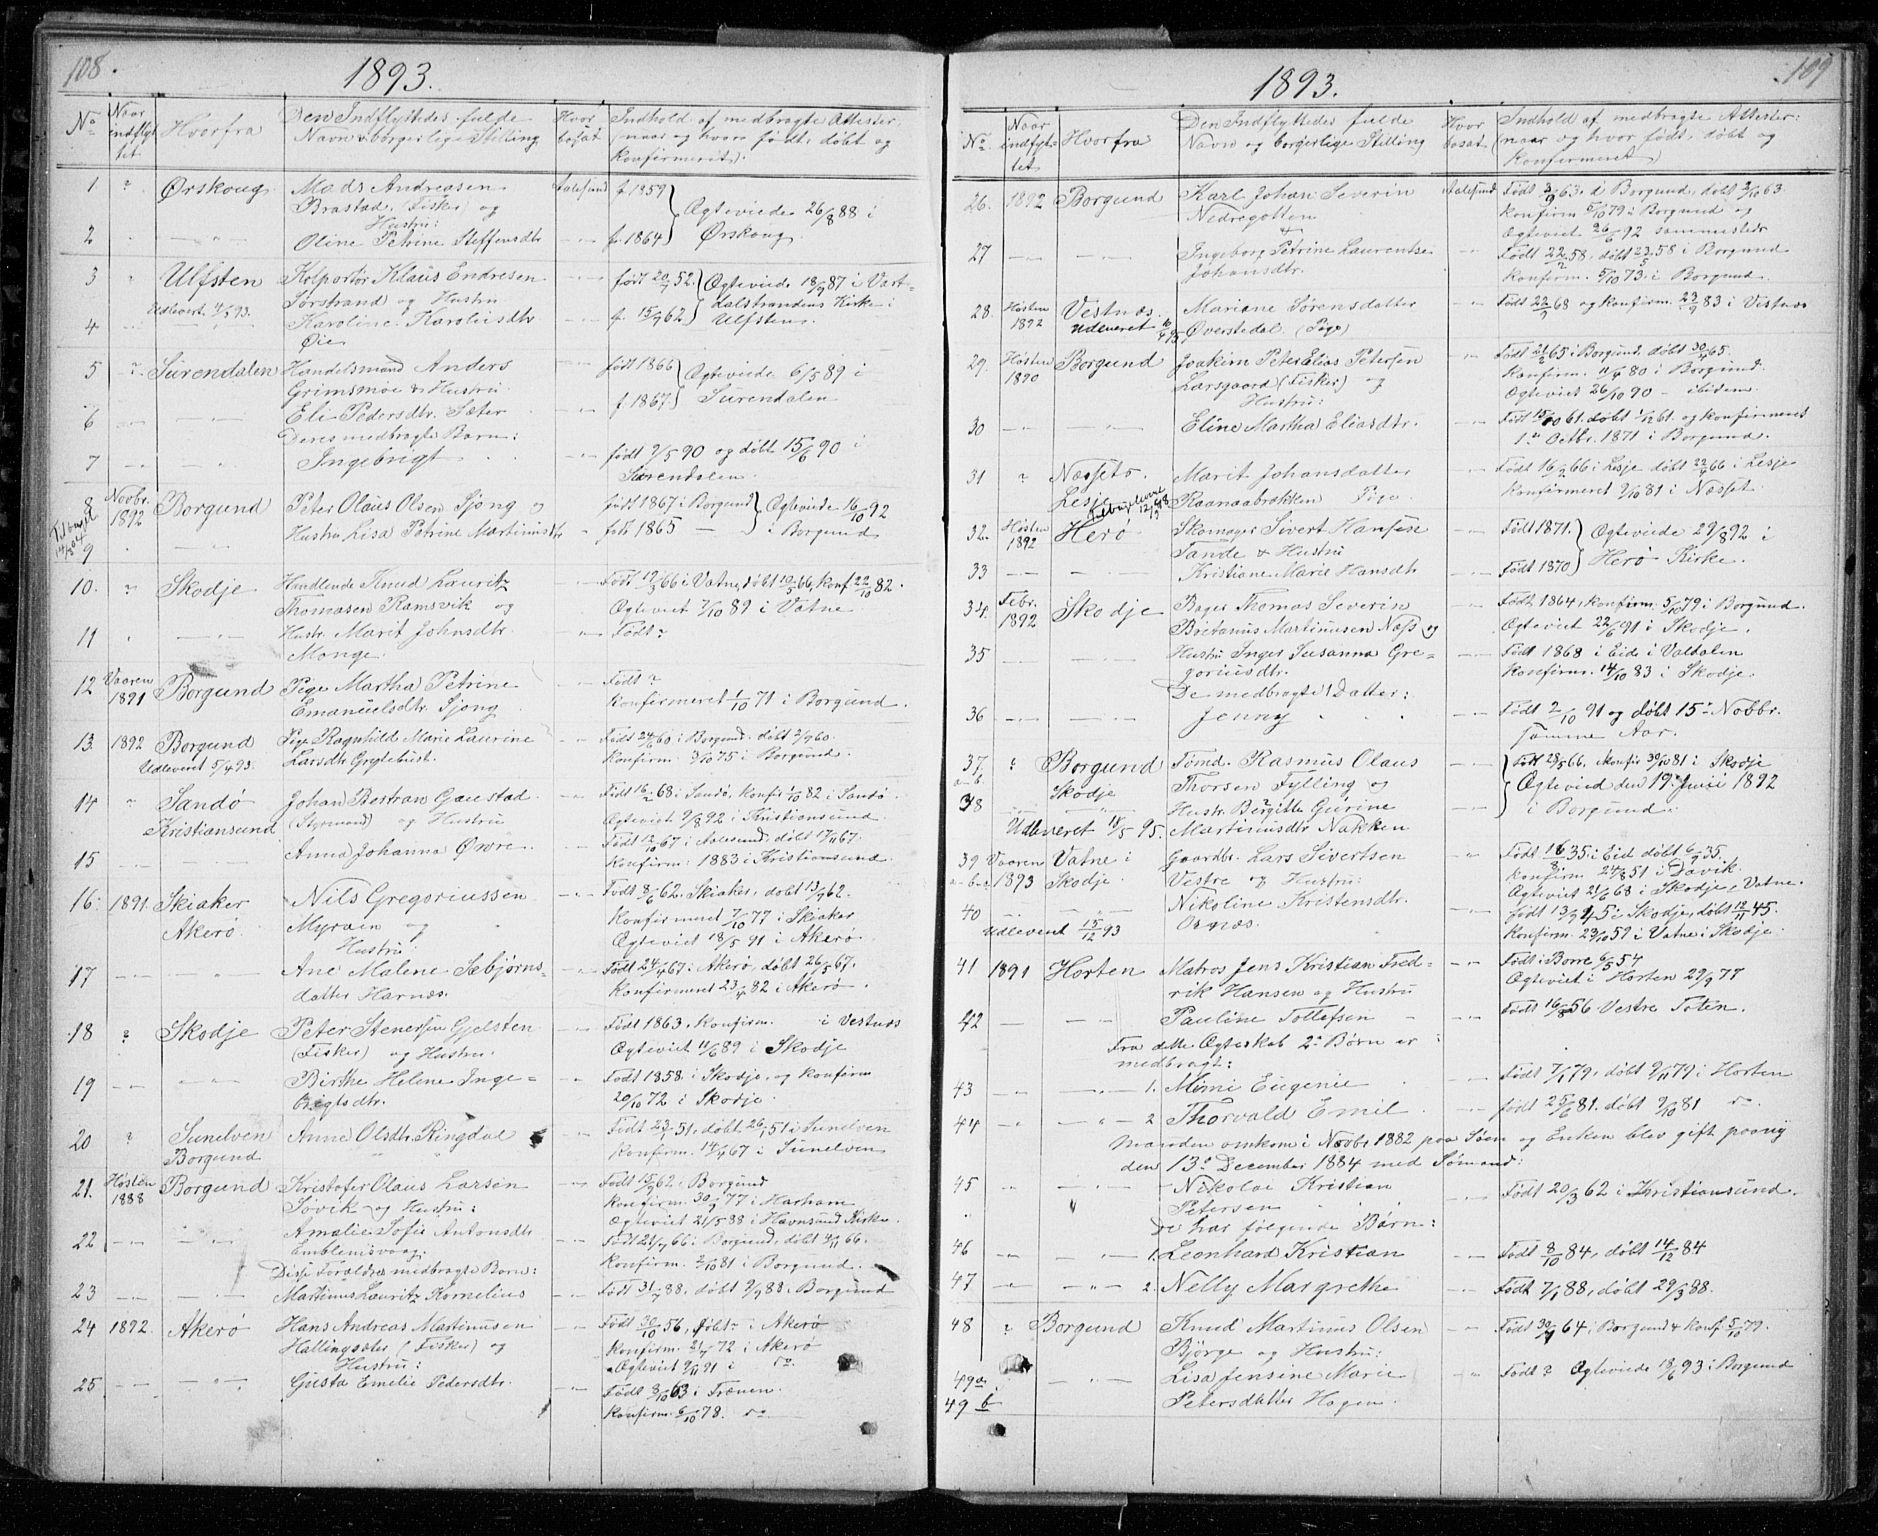 108.
1893.
No
Naar indflyttet.
Hvorfra
Den Indflyttedes fulde Navn & borgerlige Stilling
Hvor bosat
Indhold af medbragte Attester, (naar og hvor født, døbt og konfirmerit).
1 ? Ørskoug Mads Andreasen Aalesund f. 1859
Brastad, (Fisker) og Ægteviede 26/8 88 i
Hustru:
2 Oline Petrine Steffensdtr f. 1864 Ørskoug.
3 Ulfsten Kolportør Klaus Endresen født 20/7 52. Ægteviede 18/9 87 i Vart-
Udlevert. 4/5 93. Sørstrand og Hustru dalstrandens Kirke i
4 Karoline Karoliusdtr f. 15/9 62 Ulfsten.
Øie
5 ? Surendalen Handelsmand Anders født 1866 Ægteviede 6/5 89 i
Grimsmoe & Hustru
6 Eli Pedersdtr. Sæter f. 1867 Surendalen
Deres medbragte Barn:
7 Ingebrigt født 7/5 90 og døbt 15/6 90
Surendalen.
8 Novbr. 1892 Borgund Peter Olaus Olsen Sjong og født 1867 i Borgund Ægteviede 16/10 92
9 Hustru Lisa Petrine Martinusdtr født 1865 i Borgund
10. ? Skodje Handlende Knud Lauritz Født 19/3 66 i Vatne, døbt 10/5 66, konf 22/10 82.
Thomasen Ramsvik og Ægteviet 7/10 89 i Vatne
11 Hustr. Marit Johnsdtr. Født?
Monge.
12 Vaaren 1891 Borgund Pige Martha Petrine Født?
Emanuelsdtr. Sjong Konfirmeret 1/10 71 i Borgund.
13. 1892 Borgund Pige Ragnhild Marie Laurine Født 24/6 60 i Borgund. døbt 2/9 60.
Udleveret 5/4 93. Larsdtr Grytebust. Konfirm. 3/10 75 i Borgund.
14 Sandø Johan Bertran Gaustad Født 16/2 68 i Sandø, konfir 1/10 82 i Sandø
Kristiansund (Styrmand) og Hustru Ægteviet 7/8 92 i Kristiansund.
15 Anna Johanna Øvre. Født 12/10 67 i Aalesund, døbt 17/11 67.
Konfirm: 1883 i Kristiansund.
16. 1891. Skiaker Nils Gregoriussen Født 8/6 62. Skiaker, døbt 13/7 62.
Akerø. Myrvein og Konfirmeret 7/10 77 i Skiaker
Hustru Ægteviet 18/5 91 i Akerø.
17 Ane Malene Sæbjørns- Født 24/4 67 i Akerø, døbt 26/5 67.
datter Harnæs. Konfirmeret 23/4 82 i Akerø.
18 ? Skodje Peter Stenersen Gjelsten Født 1863, Konfirm. i Vestnæs
(Fisker) og Hustru. Ægteviet 11/6 89 i Skodje
19 Birthe Helene Inge- Født 1858 i Skodje, og konfirm
brigtsdtr. 20/10 72 i Skodje.
20 ? Sunelven Anne Olsdtr. Ringdal Født 23/1 51, døbt 26/1 51 i Sunelven
Borgund Konfirm. 14/4 67 i Sunelven
21. Høsten 1888 Borgund Kristofer Olaus Larsen Født 15/9 62 i Borgund
Søvik og Hustru: Konfirm. 30/9 77 i Harham
Ægteviet 21/5 88 i Havnsund Kirke.
22 Amalie Sofie Antonsdtr Født 21/7 66 i Borgund, døbt 4/11 66.
Emblemsvaag. Konfirm. 2/10 81 i Borgund.
Disse Forældre medbragte Barn:
23 Martinus Lauritz Kornelius Født 31/7 88, døbt 9/9 88. Borgund
24 1892. Akerø Hans Andreas Martinusen Født 30/10 56, døbt? i Akerø
Hallingsæter (Fisker) og Konfirm. 21/7 72 i Akerø
Hustru: Ægteviet 9/11 91 i do.
25 Gusta Emelie Pedersdtr. Født 8/10 63 i Frænen.
Konfirm. 6/10 78. do
109
1893.
No.
Naar indfyttet
Hvorfra
Den Indflyttedes fulde Navn og borgerlige Stilling
Hvor bosat
Indhold af medbragte Attester: (naar og hvor født, døbt og Konfirmeret)
26. 1892 Borgund Karl Johan Severin Aalesund Født 3/9 63. i Borgund, døbt 3/10 63.
Nedregotten Konfirm 5/10 79 i Borgund og
& Ægteviet 26/6 92 sammesteds
27 Ingeborg Petrine Laurentse Født 22/2 58, døbt 23/5 58 i Borgund
Johansdtr. Konfirm. 5/10 73. i Borgund.
28. Høsten 1892 Vestnæs Mariane Sørensdatter Født 22/9 68 og konfirm. 23/9 83 i Vestnæs
Udleveret Øverstedal (Pige)
29. Høsten 1890 Borgund Joakim Peter Elias Petersen Født 21/2 65 i Borgund, døbt 30/4 65.
Larsgaard (Fisker) og Konfirm. 11/4 80 i Borgund.
Hustru: Ægteviet 26/10 90 - ibidem
30 Eline Martha Eliasdtr. Født 15/10 61. døbt 1/12 61. og konfirmeret
1ste Octbr. 1871 i Borgund.
31 ? Næsset Marit Johansdatter Født 16/2 66 i Lesje døbt 22/4 66 i Lesje
Lesje Raanaabrækken Pige Konfirmeret 9/10 81 i Næsset
32. Høsten 1892 Herø Skomager Sivert Hansen Født 1871. Ægteviede 29/8 92 i
Tande & Hustru
33 Kristiane Marie Hansdtr Født 1870 Herø Kirke.
34. Febr. 1892 Skodje Bager Thomas Severin Født 1864, konfirm. 5/10 79 i Borgund.
Britanus Martinusen Næss og Ægteviet 22/6 91 i Skodje.
35 Hustru Inger Susanna Gre- Født 1868 i Eide i Valdalen
goriusdtr. Konfirm. 14/10 83 i Skodje.
De medbragte 1 Datter:
36 Jenny Født 2/10 91 og døbt 15de Novbr.
samme Aar.
37 ? Borgund Tømd. Rasmus Olaus Født 29/5 66, Konfir 30/10 81 i Skodje
Skodje Thorsen Fylling og Ægteviet den 19de Juni 1892
38 Hustr. Bergitte Gurine i Borgund
Udleveret 14/5 95. Martinusdtr Nakken
39 Vaaren 1893 Vatne i Skodje. Gaardbr. Lars Sivertsen Født 16/8 35 i Eid døbt 6/9 35.
Vestre og Hustru: Konfirm 24/8 51 i Davik.
Ægteviet 21/6 68 i Skodje, Vatne.
40 Nikoline Kristensdtr. født 13/9 45 i Skodje, døbt 12/11 45.
Udleveret 15/12 93 Osnæs. Konfirm. 23/10 59 i Vatne i Skodje.
41 1891 Horten Matros Jens Kristian Fred- Født i Borre 6/5 54
rik Hansen og Hustru Ægteviet i Horten 29/9 77
42 Pauline Tollefsen Født 16/8 56 Vestre Toten.
Fra dette Ægteskab 2de Børn er
medbragt:
43 1. Mimi Eugenie Født 7/1 79, døbt 9/11 79 i Horten
44 2 Thorvald Emil født 25/6 81. døbt 9/10 81 do.
Manden omkom i Novbr 1882 paa Søen og Enken blev gift paany
den 13de December 1884 med Sømand:
45 Nikolai Kristian Født 20/3 62 i Kristiansund.
Petersen
De har følgende Børn:
46 1. Leonhard Kristian Født 8/10 84, døbt 14/12 84
47 2. Nelly Margrethe Født 7/1 88, døbt 29/3 88.
48 ? Borgund Knud Martinus Olsen Født 30/9 64, Borgund & Konf. 5/10 79.
Bjørge og Hustru:
49 a. Lisa Jensine Marie Født? Ægteviede 18/6 93 i Borgund
49 b Petersdatter Hagen.